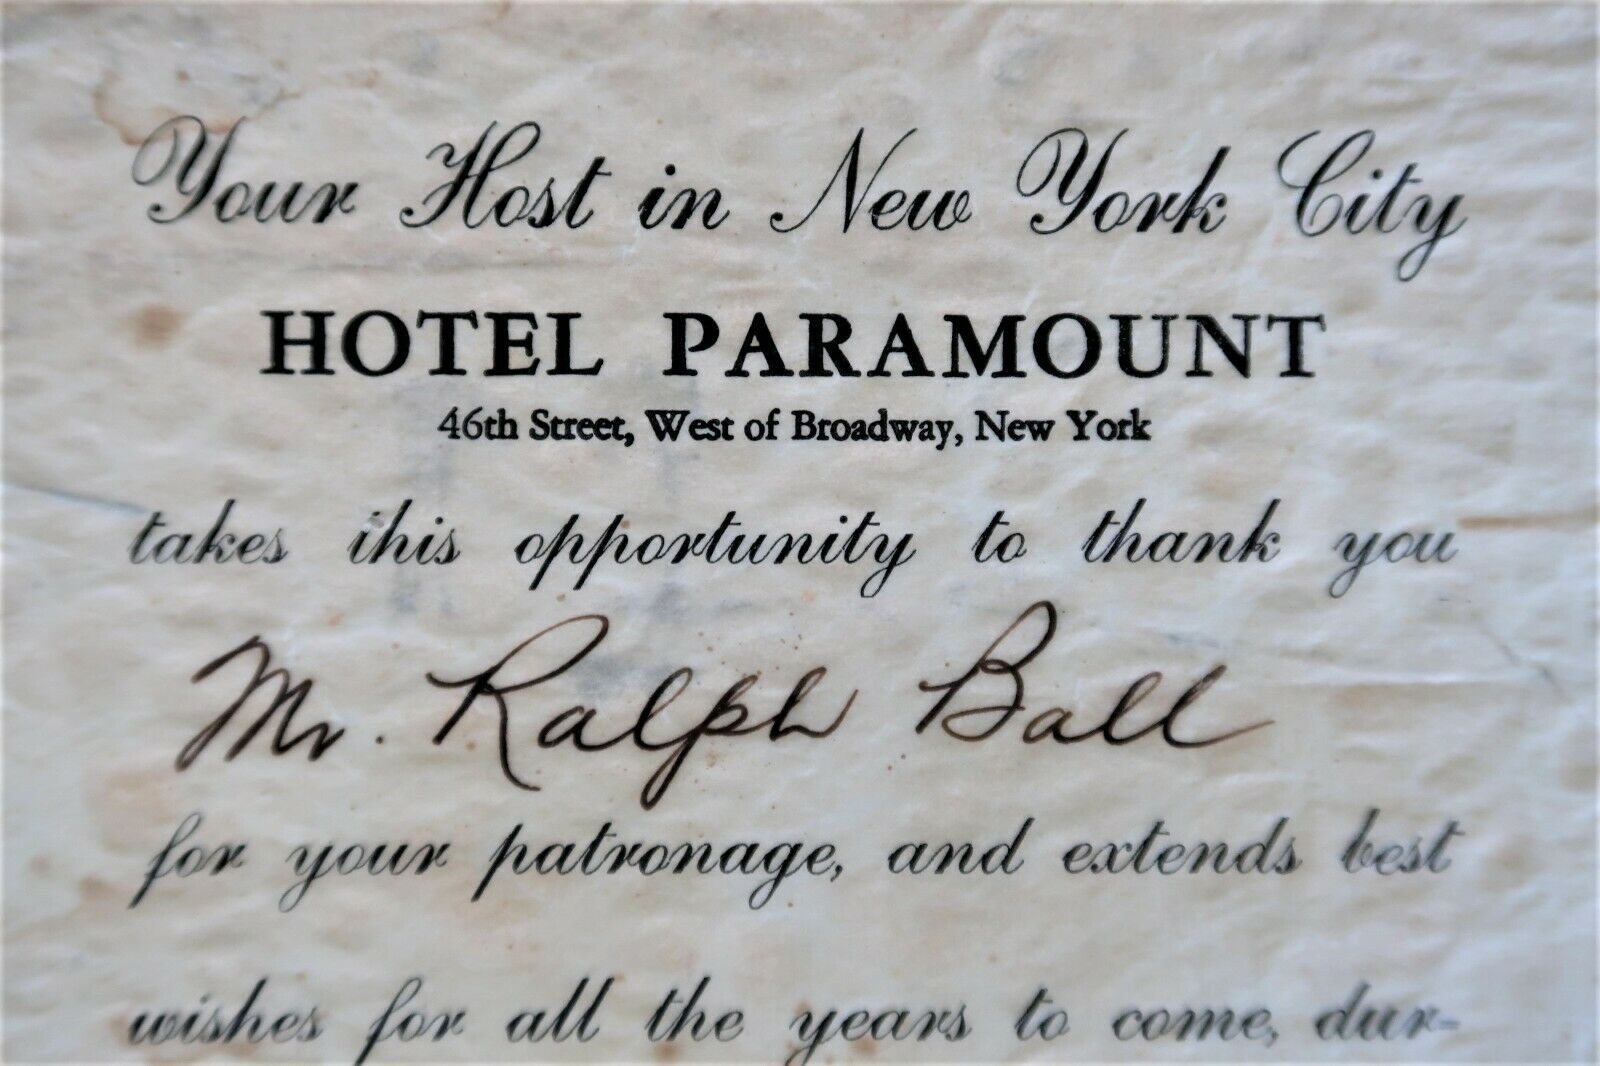 Your Host in New York City
HOTEL PARAMOUNT
46th Street, West of Broadway, New York
takes this opportunity to thank you
Mr. Ralph Ball
for your patronage, and extends best
wishes for all the years to come, dur-